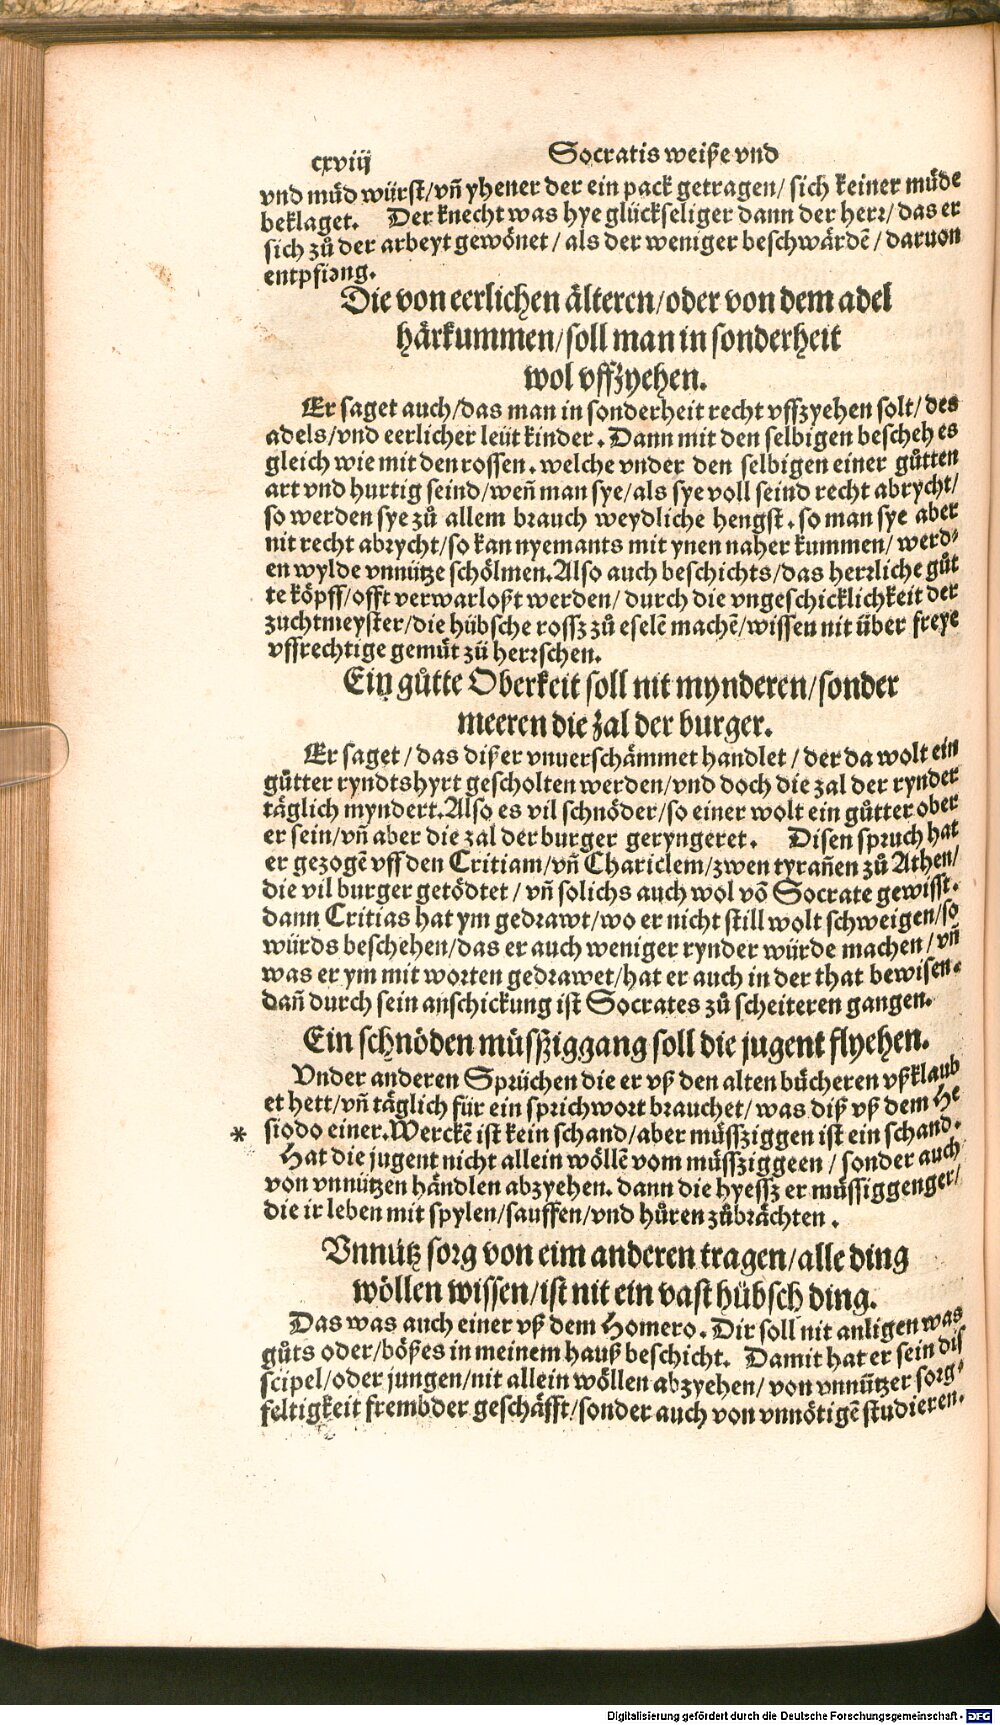 cxviij
Socratis weiße vnd
vnd müd würst/vñ yhener der ein pack getragen/ sich keiner müde
beklaget. Der knecht was hye glückseliger dann der herr/das er
sich zů der arbeyt gewönet/als der weniger beschwärdē/daruon
entpfiɔng.
Die von eerlichen älteren/oder von dem adel
härkummen/soll man in sonderheit
wol vffzyehen.
Er saget auch/das man in sonderheit recht vffzyehen solt/des
adels/vnd eerlicher leüt kinder. Dann mit den selbigen bescheh es
gleich wie mit den rossen. welche vnder den selbigen einer gůtten
art vnd hurtig seind/weñ man sye/als sye voll seind recht abrycht/
so werden sye zů allem brauch weydliche hengst. so man sye aber
nit recht abrycht/so kan nyemants mit ynen naher kummen/werd⸗
en wylde vnnütze schölmen. Also auch beschichts/das herrliche gůt
te köpff/offt verwarloßt werden/durch die vngeschicklichkeit der
zuchtmeyster/die hübsche rossz zů eselē machē/wissen nit über freye
vffrechtige gemüt zü herrschen.
Ein gůtte Oberkeit soll nit mynderen/sonder
meeren die zal der burger.
Er saget/das dißer vnuerschämmet handlet/der da wolt ein
gůtter ryndtshyrt gescholten werden/vnd doch die zal der rynder
täglich myndert. Also es vil schnöder/so einer wolt ein gůtter ober
er sein/vñ aber die zal der burger geryngeret. Disen spruch hat
er gezogē vff den Critiam/vñ Chariclem/zwen tyrañen zů Athen/
die vil burger getödtet/vñ solichs auch wol vō Socrate gewisst.
dann Critias hat ym gedrawt/wo er nicht still wolt schweigen/so
würds beschehen/das er auch weniger rynder würde machen/vñ
was er ym mit worten gedrawet/hat er auch in der that bewisen.
dañ durch sein anschickung ist Socrates zů scheiteren gangen.
Ein schnöden müsßiggang soll die jugent flyehen.
Vnder anderen Sprüchen die er vß den alten bücheren vßklaub
et hett/vñ täglich für ein sprichwort brauchet/was diß vß dem He
* siodo einer. Werckē ist kein schand/aber müssziggen ist ein schand.
Hat die jugent nicht allein wöllē vom müssziggeen/sonder auch
von vnnützen händlen abzyehen. dann die hyessz er müssiggenger/
die ir leben mit spylen/sauffen/vnd hůren zůbrächten.
Vnnütz sorg von eim anderen tragen/alle ding
wöllen wissen/ist nit ein vast hübsch ding.
Das was auch einer vß dem Homero. Dir soll nit anligen was
gůts oder/bößes in meinem hauß beschicht. Damit hat er sein dis
scipel/oder jungen/nit allein wöllen abzyehen/von vnnützer sorg⸗
feltigkeit frembder geschäfft/sonder auch von vnnötigē studieren.
Digitalisierung gefördert durch die Deutsche Forschungsgemeinschaft - DFG